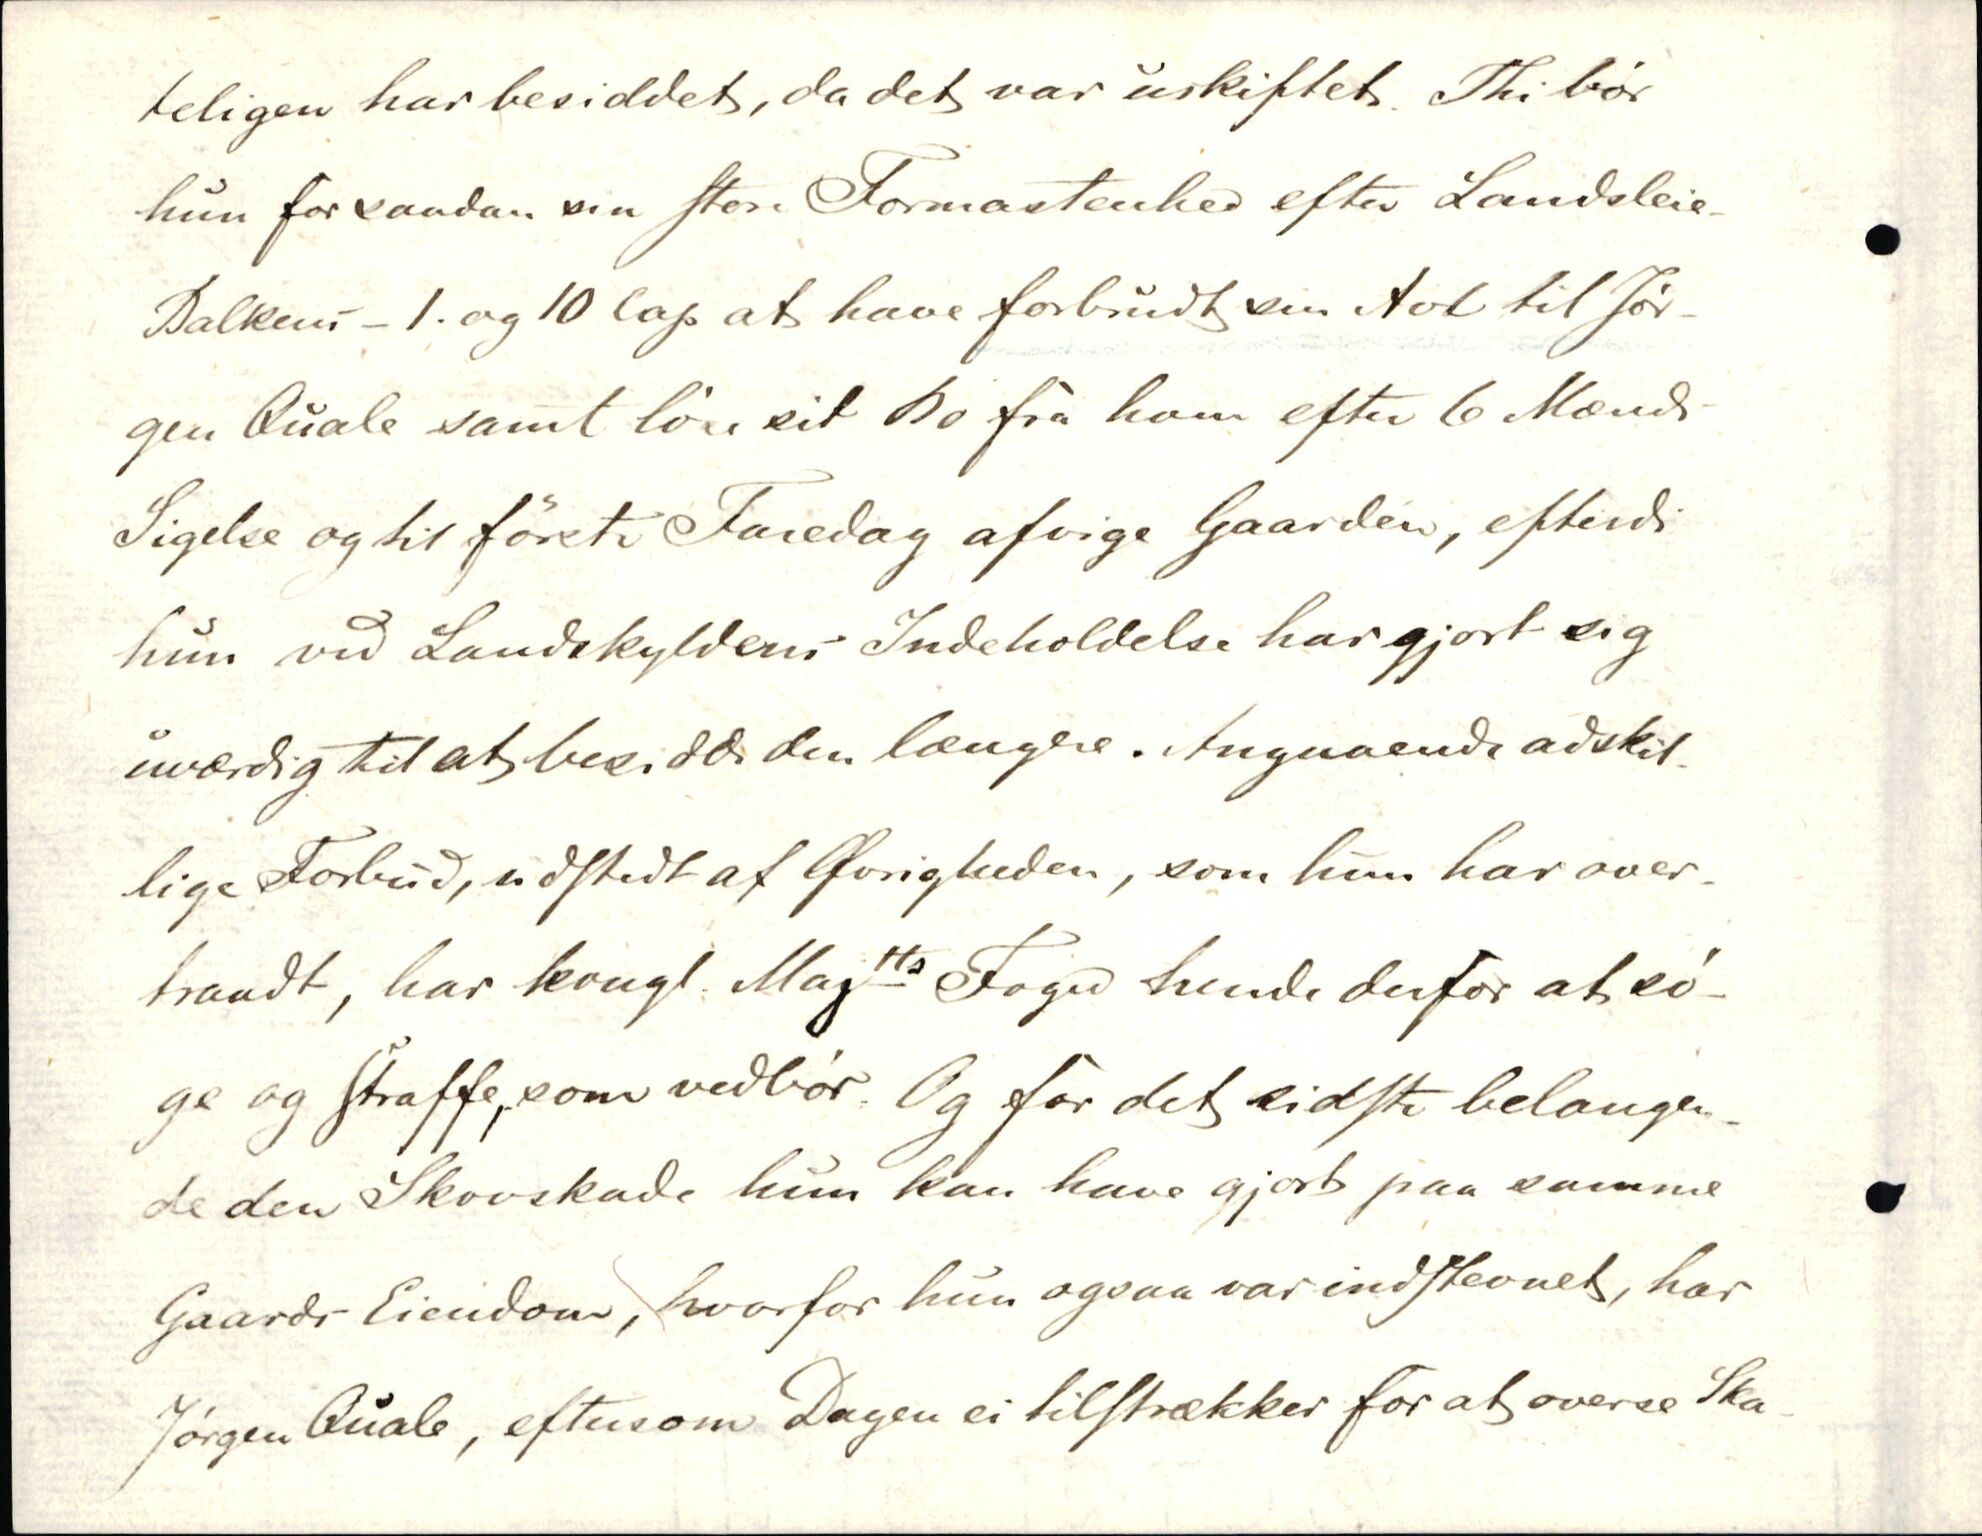 teligen har besiddet, da det var uskiftet. Thi bör
hun for saadan sin store Formastenhed efter Landsleie-
Balkens - 1. og 10 Cap at have forbrudt sin Avl til Jör-
gen Quale samt löse sit Bo fra ham efter 6 Mænds
Sigelse og til förste Faredag afvige Gaarden, efterdi
hun ved Landskyldens Indeholdelse har gjort sig
uværdig til at besidde den længere. Angaaende adskil-
lige Forbud, udstedt af Øvrigheden, som hun har over-
traadt, har kongl. Maj<sup>tts</sup> Foged hende derfor at sö-
ge og straffe, som vedbör. Og for det sidste belangen-
de den Skovskade hun kan have gjort paa samme
Gaards Eiendom, hvorfor hun ogsaa var indstevnet, har
Jörgen Quale, eftersom Dagen ei tilstrækker for at overse Ska-